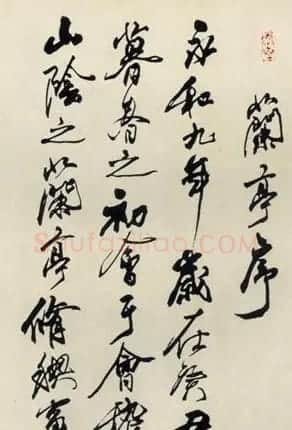 蘭亭序
永和九年歲在癸丑
暮春之初會于會稽
山陰之蘭亭脩禊事
Shufaziliao.COM